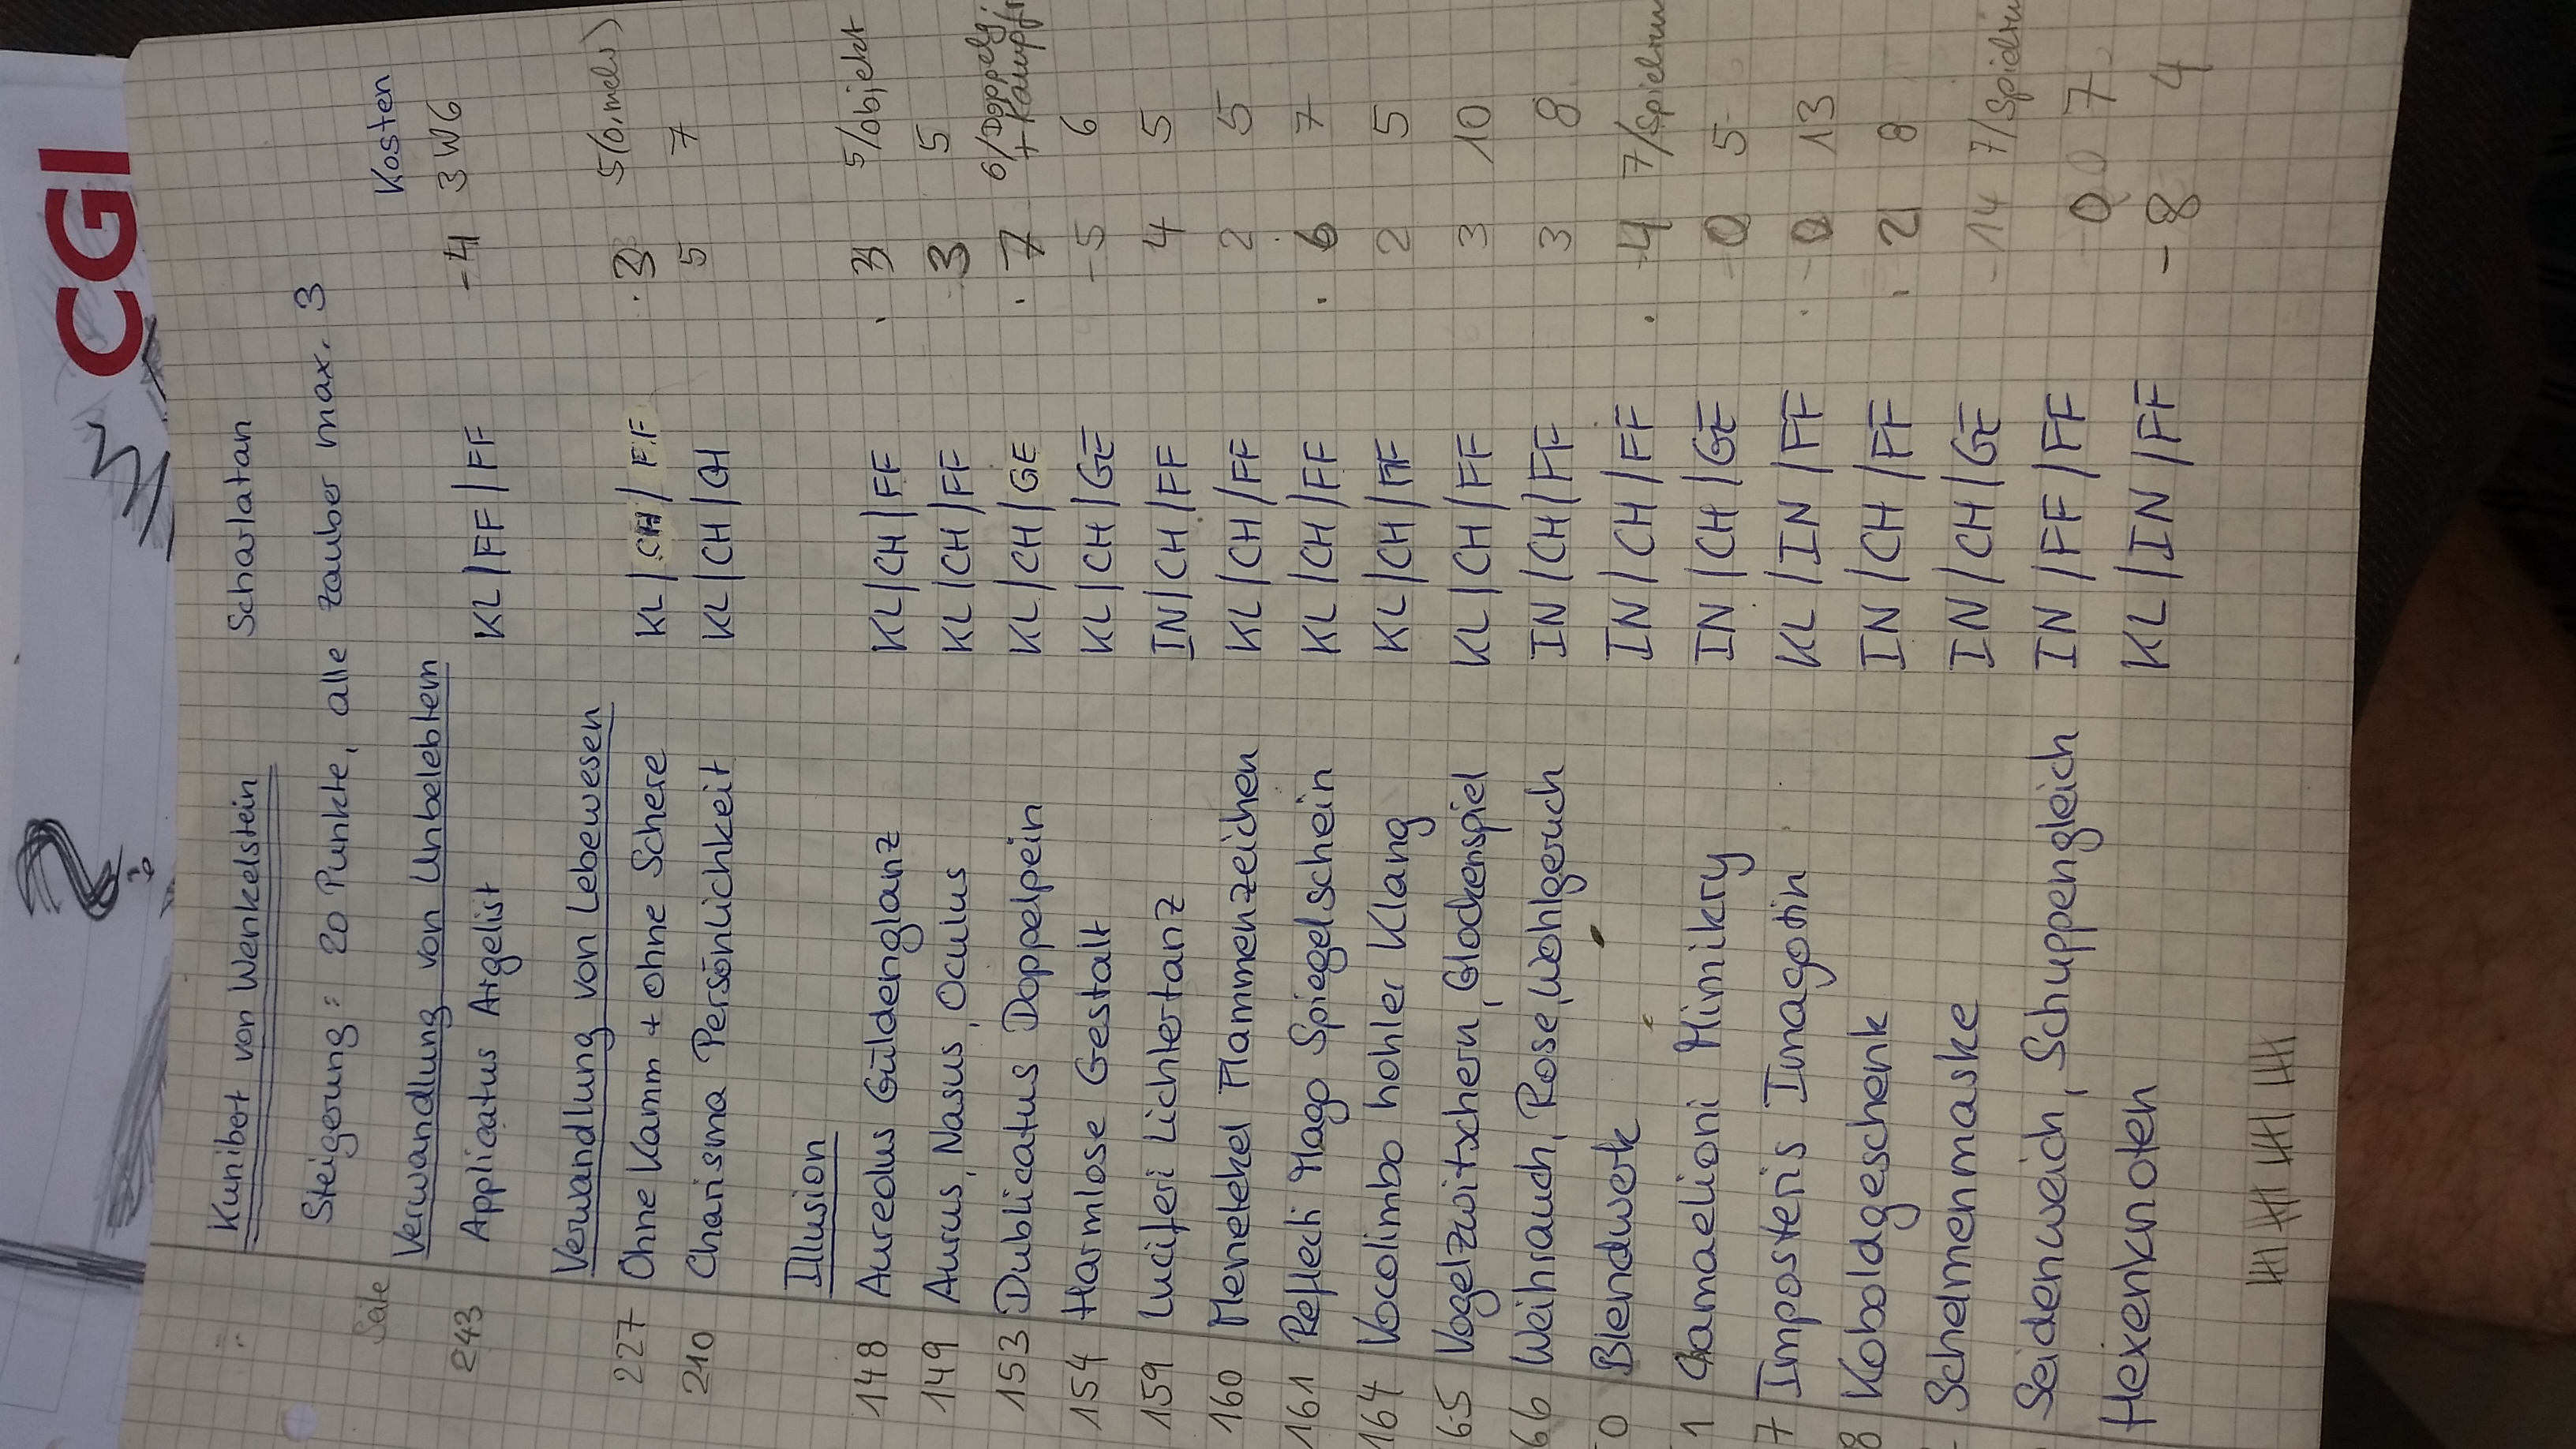 CGI
Kunibert von Wenkelstein Scharlatan
Steigerung: 20 Punkte, alle Zauber max. 3
Seite Kosten
Verwandlung von Unbelebtem
243 Applicatus Argelist KL/FF/FF -4 3W6
Verwandlung von Lebewesen
227 Ohne Kamm + ohne Schere KL/CH/FF 3
210 Charisma Persönlichkeit KL/CH/CH 5 7
Illusion
148 Aureolus Güldenglanz KL/CH/FF 3 5/Objekt
149 Aurus, Nasus, Oculus KL/CH/FF 3 5
153 Dublicatus Doppelpein KL/CH/GE 7 6/Doppelg.
154 Harmlose Gestalt KL/CH/GE -5 6
159 Luciferi Lichtertanz IN/CH/FF 4 5
160 Menetekel Flammenzeichen KL/CH/FF 2 5
161 Reflecti Mago Spiegelschein KL/CH/FF 6 7
164 Vocolimbo hohler Klang KL/CH/FF 2 5
65 Vogelzwitschern, Glockenspiel KL/CH/FF 3 10
66 Weihrauch, Rose, Wohlgeruch IN/CH/FF 3 8
0 Blendwerk IN/CH/FF -4
1 Chamaelioni Mimikry IN/CH/GE 0 5
7 Imposteris Imagotin KL/IN/FF 0 13
8 Koboldgeschenk IN/CH/FF 2 8
Schelmenmaske IN/CH/GE -14
Seidenweich, Schuppengleich IN/FF/FF 0 7
Hexenknoten KL/IN/FF -8 4